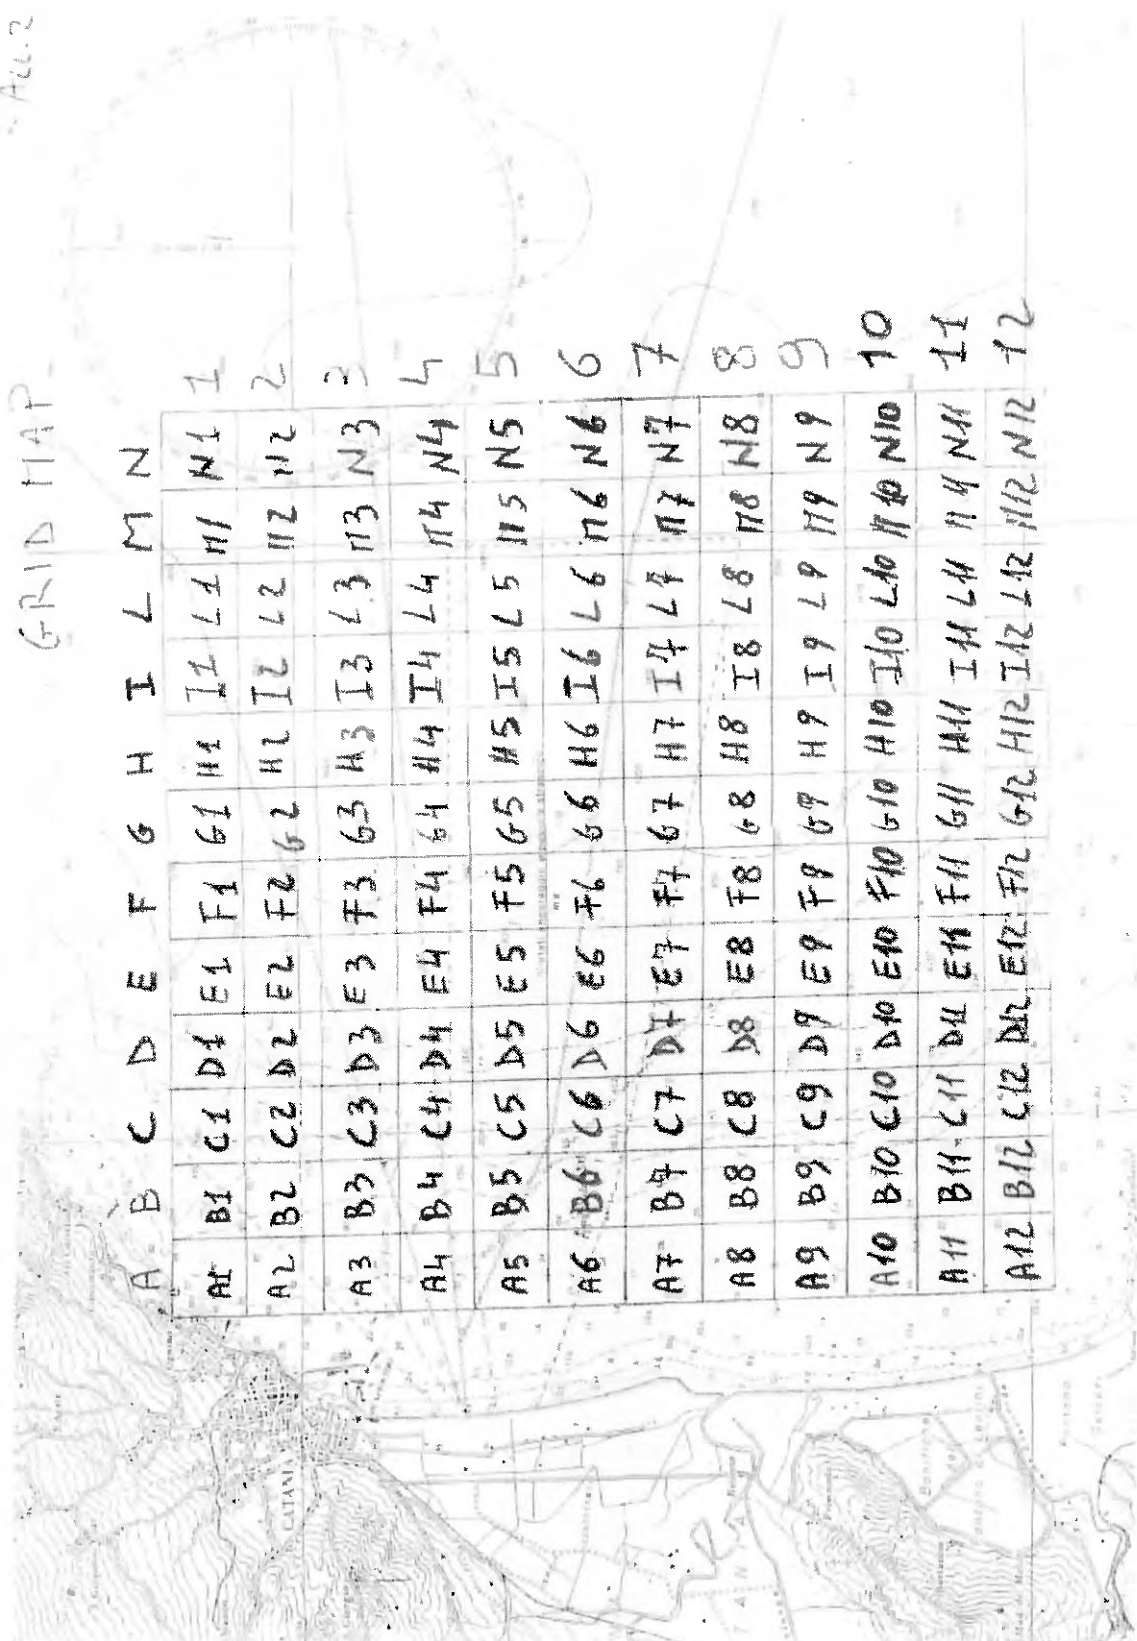 ALL.2
GRID MAP
A B C D E F G H I L M N
A1 B1 C1 D1 E1 F1 G1 H1 I1 L1 M1 N1 1
A2 B2 C2 D2 E2 F2 G2 H2 I2 L2 M2 N2 2
A3 B3 C3 D3 E3 F3 G3 H3 I3 L3 M3 N3 3
A4 B4 C4 D4 E4 F4 G4 H4 I4 L4 M4 N4 4
A5 B5 C5 D5 E5 F5 G5 H5 I5 L5 M5 N5 5
A6 B6 C6 D6 E6 F6 G6 H6 I6 L6 M6 N6 6
A7 B7 C7 D7 E7 F7 G7 H7 I7 L7 M7 N7 7
A8 B8 C8 D8 E8 F8 G8 H8 I8 L8 M8 N8 8
A9 B9 C9 D9 E9 F9 G9 H9 I9 L9 M9 N9 9
A10 B10 C10 D10 E10 F10 G10 H10 I10 L10 M10 N10 10
A11 B11 C11 D11 E11 F11 G11 H11 I11 L11 M11 N11 11
A12 B12 C12 D12 E12 F12 G12 H12 I12 L12 M12 N12 12
CATANI